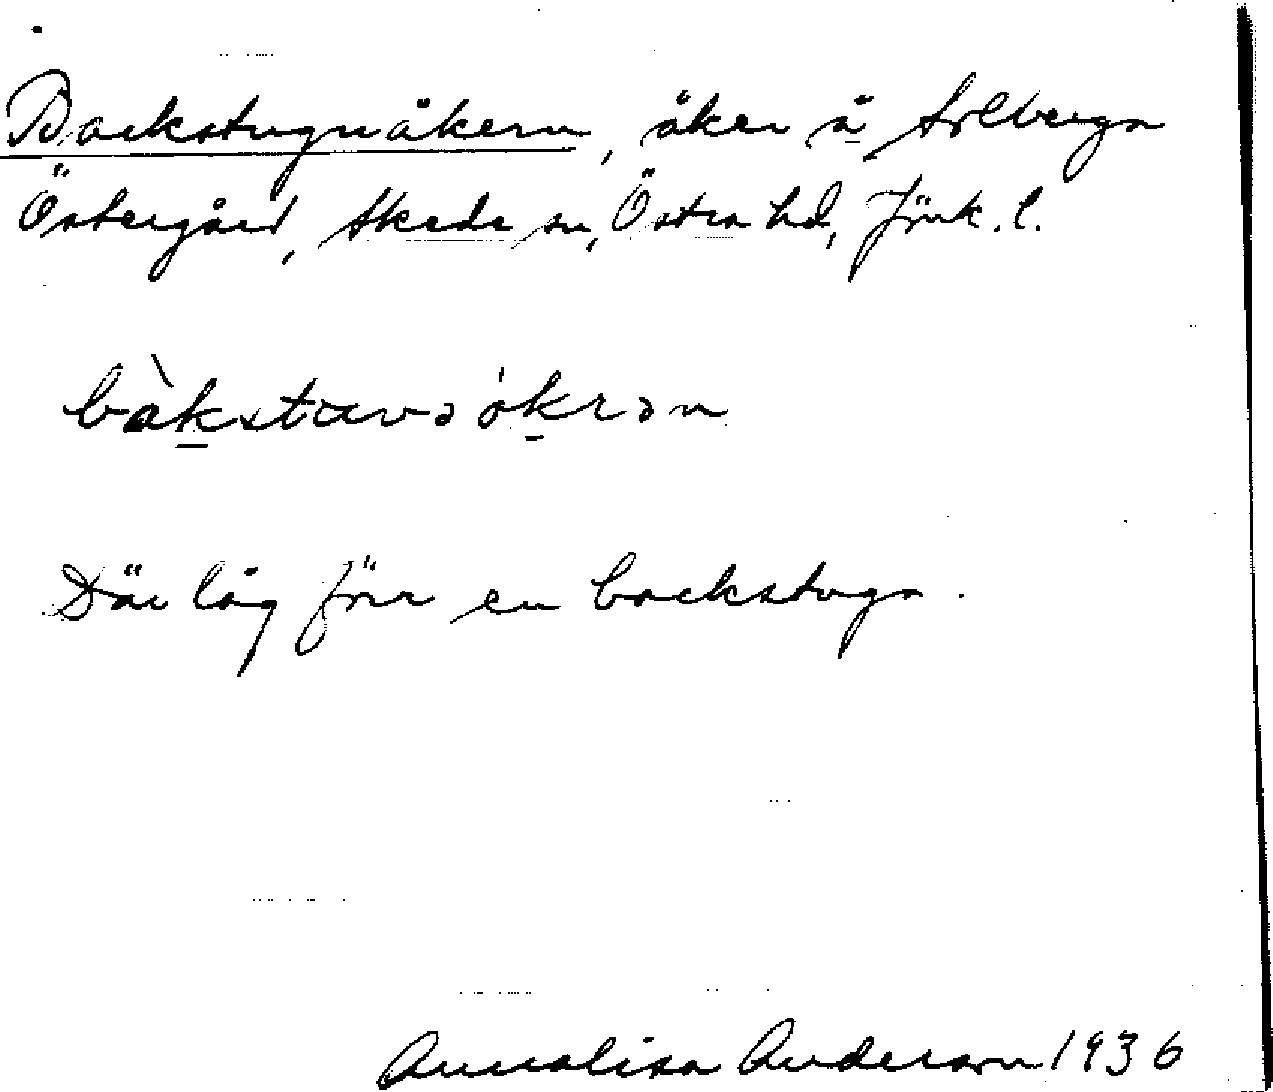 Backstuguåkern, åker å Solberga
Östergård, Skede sn, Östra hd, Jönk. l.
bàkstuvəókrən
Där låg förr en backstuga.
Annalisa Anderson 1936